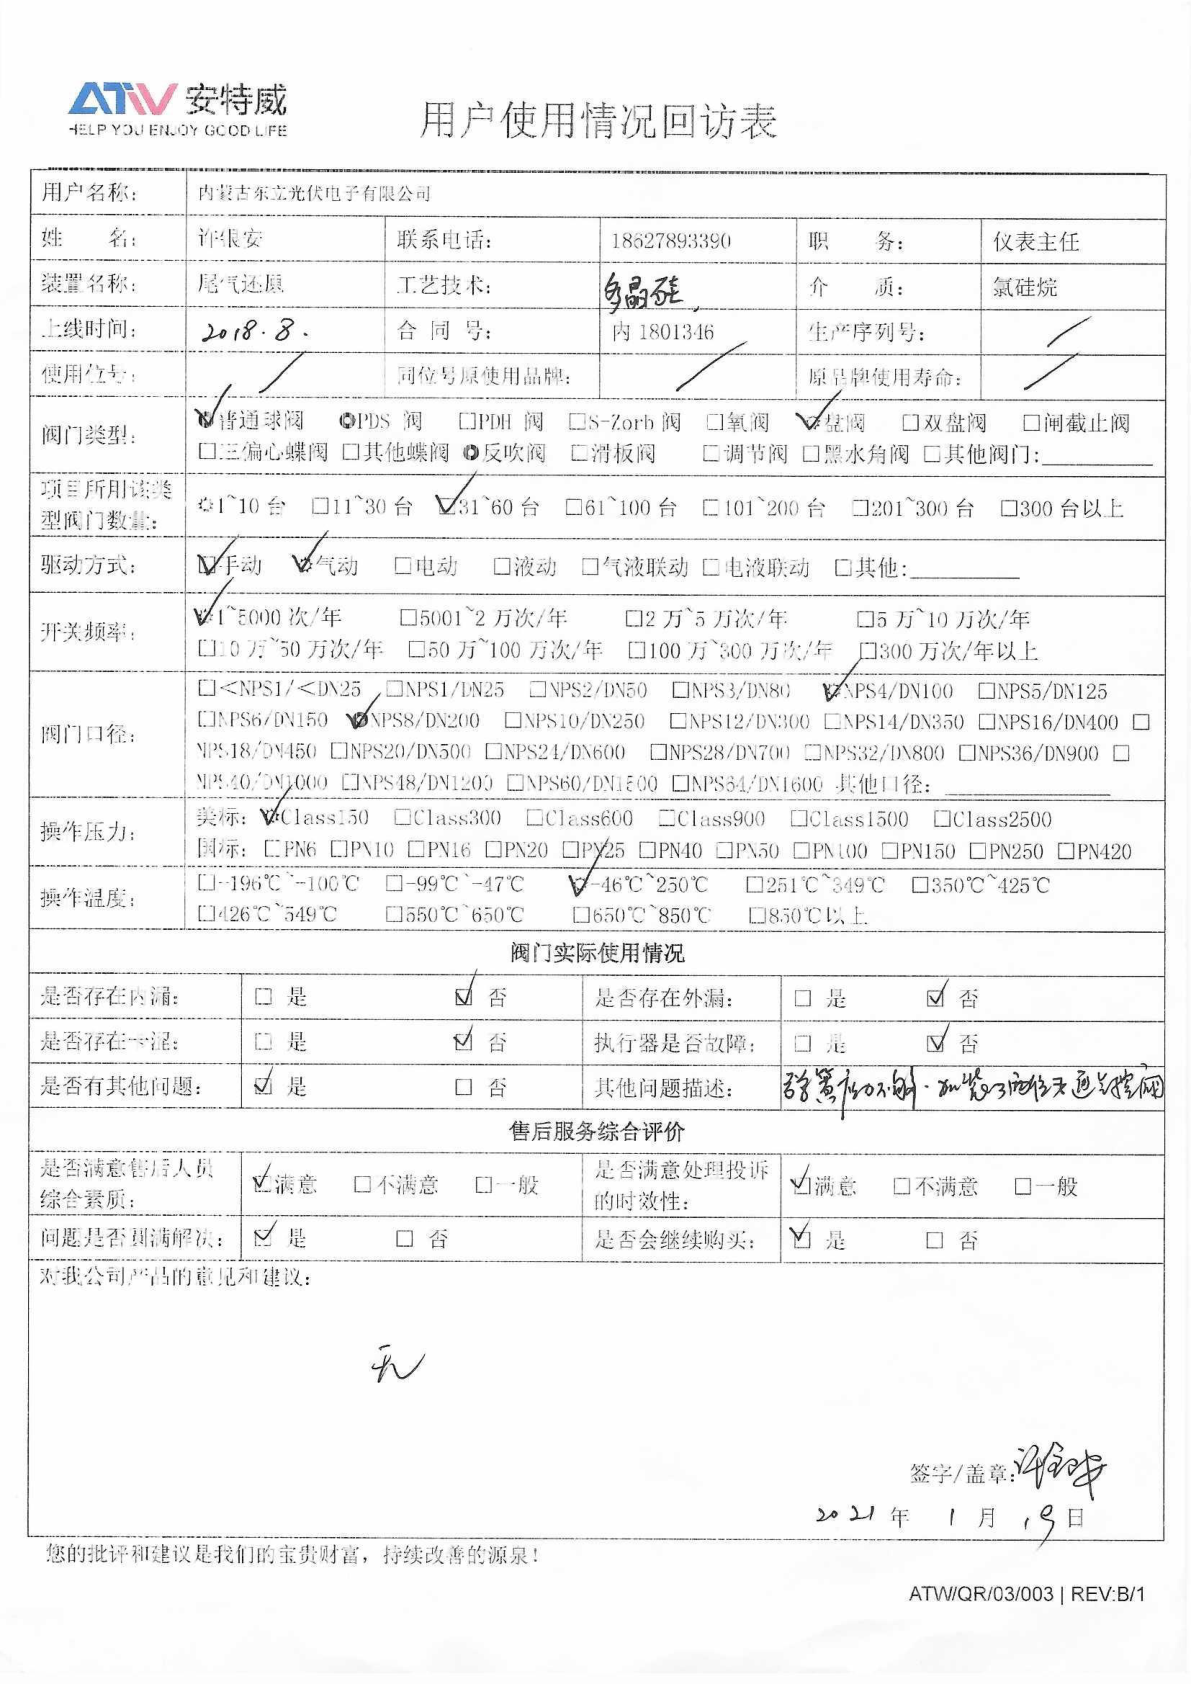 ATW 安特威
HELP YOU ENJOY GOOD LIFE
用户使用情况回访表
用户名称: 内蒙古东立光伏电子有限公司
姓 名: 许银安 联系电话: 18627893390 职 务: 仪表主任
装置名称: 尾气还原 工艺技术: 多晶硅 介 质: 氯硅烷
上线时间: 2018.8. 合 同 号: 内 1801346 生产序列号: /
使用位号: / 同位号原使用品牌: / 原品牌使用寿命: /
阀门类型: ☑普通球阀 ●PDS 阀 □PDH 阀 □S-Zorb 阀 □氧阀 ☑盘阀 □双盘阀 □闸截止阀
□三偏心蝶阀 □其他蝶阀 ●反吹阀 □滑板阀 □调节阀 □黑水角阀 □其他阀门:
项目所用该类型阀门数量: ○1~10 台 □11~30 台 ☑31~60 台 □61~100 台 □101~200 台 □201~300 台 □300 台以上
驱动方式: ☑手动 ☑气动 □电动 □液动 □气液联动 □电液联动 □其他:
开关频率: ☑1~5000 次/年 □5001~2 万次/年 □2 万~5 万次/年 □5 万~10 万次/年
□10 万~50 万次/年 □50 万~100 万次/年 □100 万~300 万次/年 □300 万次/年以上
阀门口径: □<NPS1/<DN25 □NPS1/DN25 □NPS2/DN50 □NPS3/DN80 ☑NPS4/DN100 □NPS5/DN125
□NPS6/DN150 ☑NPS8/DN200 □NPS10/DN250 □NPS12/DN300 □NPS14/DN350 □NPS16/DN400 □
NPS18/DN450 □NPS20/DN500 □NPS24/DN600 □NPS28/DN700 □NPS32/DN800 □NPS36/DN900 □
NPS40/DN1000 □NPS48/DN1200 □NPS60/DN1500 □NPS64/DN1600 其他口径:
操作压力: 美标: ☑Class150 □Class300 □Class600 □Class900 □Class1500 □Class2500
国标: □PN6 □PN10 □PN16 □PN20 □PN25 □PN40 □PN50 □PN100 □PN150 □PN250 □PN420
操作温度: □-196℃~-100℃ □-99℃~-47℃ ☑-46℃~250℃ □251℃~349℃ □350℃~425℃
□426℃~549℃ □550℃~650℃ □650℃~850℃ □850℃以上
阀门实际使用情况
是否存在内漏: □ 是 ☑ 否 是否存在外漏: □ 是 ☑ 否
是否存在卡涩: □ 是 ☑ 否 执行器是否故障: □ 是 ☑ 否
是否有其他问题: ☑ 是 □ 否 其他问题描述:
售后服务综合评价
是否满意售后人员综合素质: ☑满意 □不满意 □一般 是否满意处理投诉的时效性: ☑满意 □不满意 □一般
问题是否圆满解决: ☑ 是 □ 否 是否会继续购买: ☑ 是 □ 否
对我公司产品的意见和建议:
无
签字/盖章: 许银安
2021 年 1 月 19 日
您的批评和建议是我们的宝贵财富，持续改善的源泉!
ATW/QR/03/003 | REV:B/1